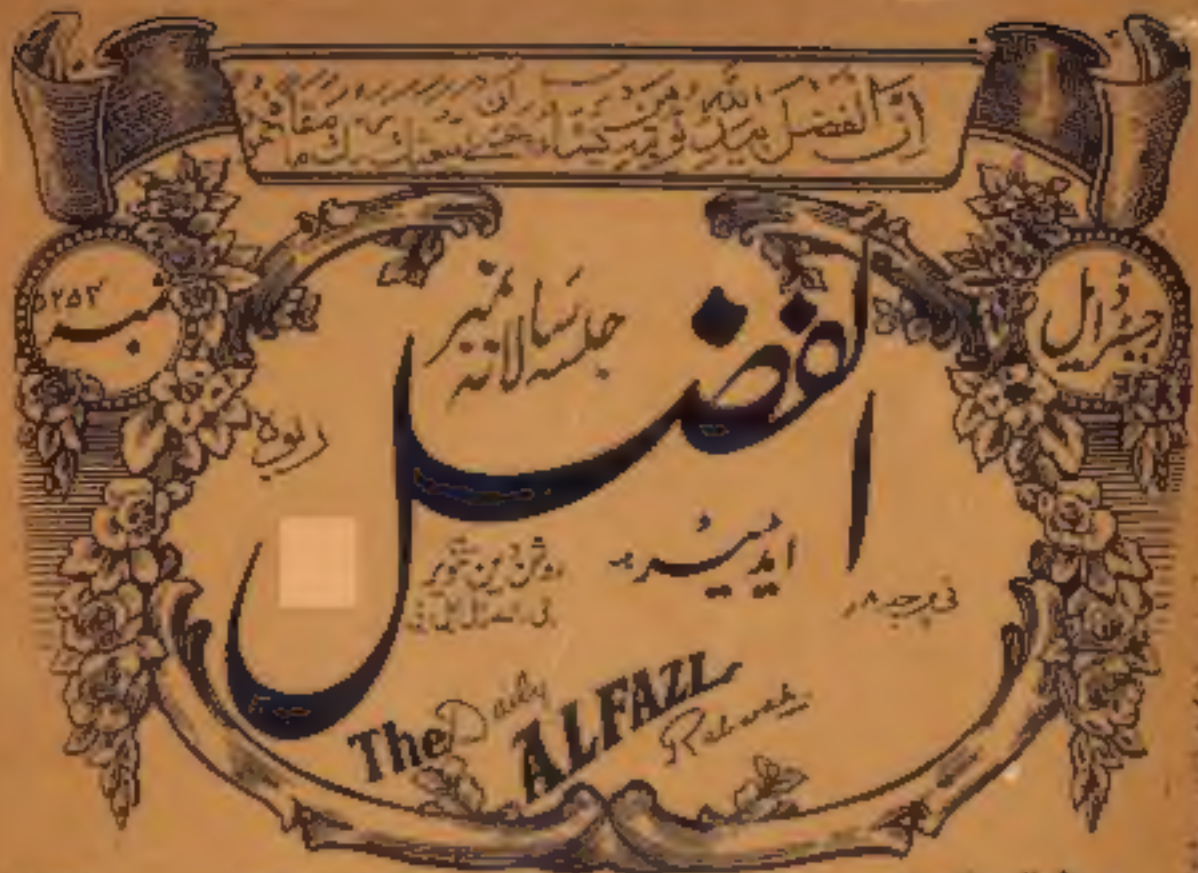 ان الفضل بيد الله يؤتيه من يشاء عسى ان يبعثك ربك مقاما محمودا
رجسٹرڈ ایل
نمبر ۵۲۵۲
الفضل
جلسہ سالانہ نمبر
ربوہ
ایڈیٹر:-
روشن دین تنویر
بی۔اے۔ایل ایل بی
فی پرچہ ۸ر
The Daily
ALFAZL
Rabwah